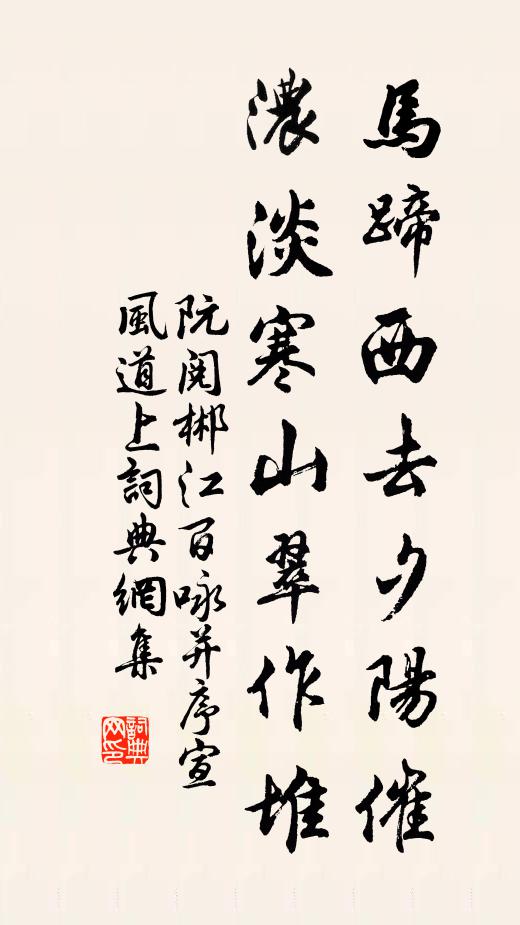 馬蹄西去夕陽催
濃淡寒山翠作堆
阮閱郴江百咏并序宣
風道上詞典網集
詞典
网印